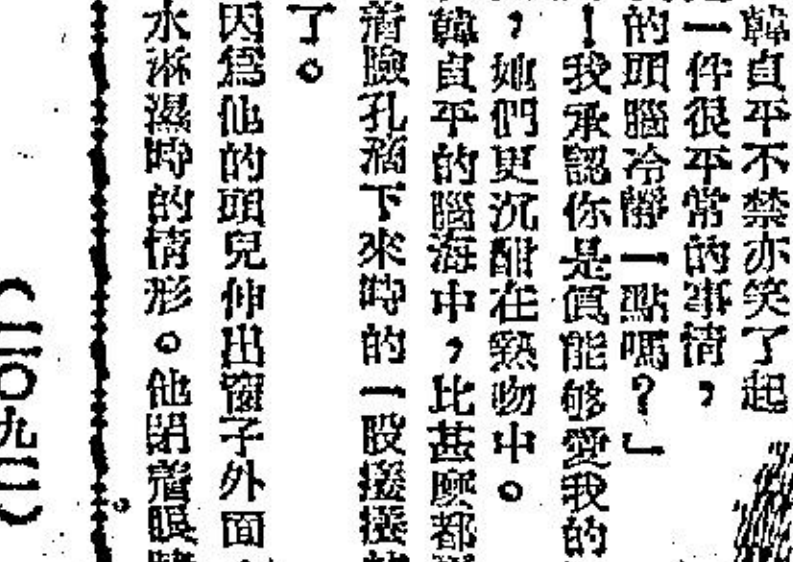 韓貞平不禁亦笑了起
一件很平常的事情，
的頭腦冷靜一點嗎？」
！我承認你是眞能够愛我的
，她們更沉酣在熱吻中。
韓貞平的腦海中，比甚麼都
着臉孔滴下來時的一股
了。
因爲他的頭兒伸出窗子外面
水淋濕時的情形。他閉着眼
（二〇九二）